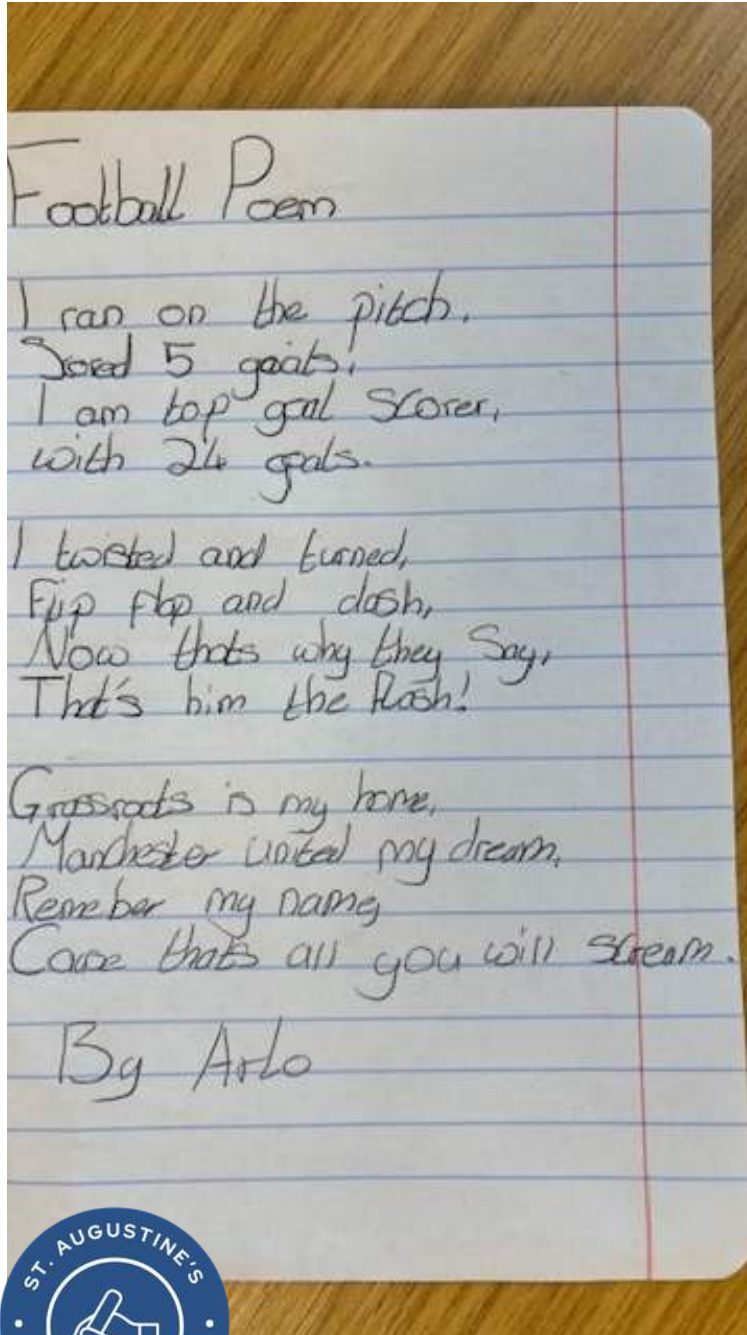 Football Poem
I ran on the pitch.
Scored 5 goals!
I am top goal scorer,
with 24 goals.
I twisted and turned,
Flip flop and dash,
Now thats why they Say,
That's him the flash!
Grassroots is my home,
Manchester united my dream,
Remeber my name,
Cause thats all you will scream.
By Arlo
ST. AUGUSTINE'S